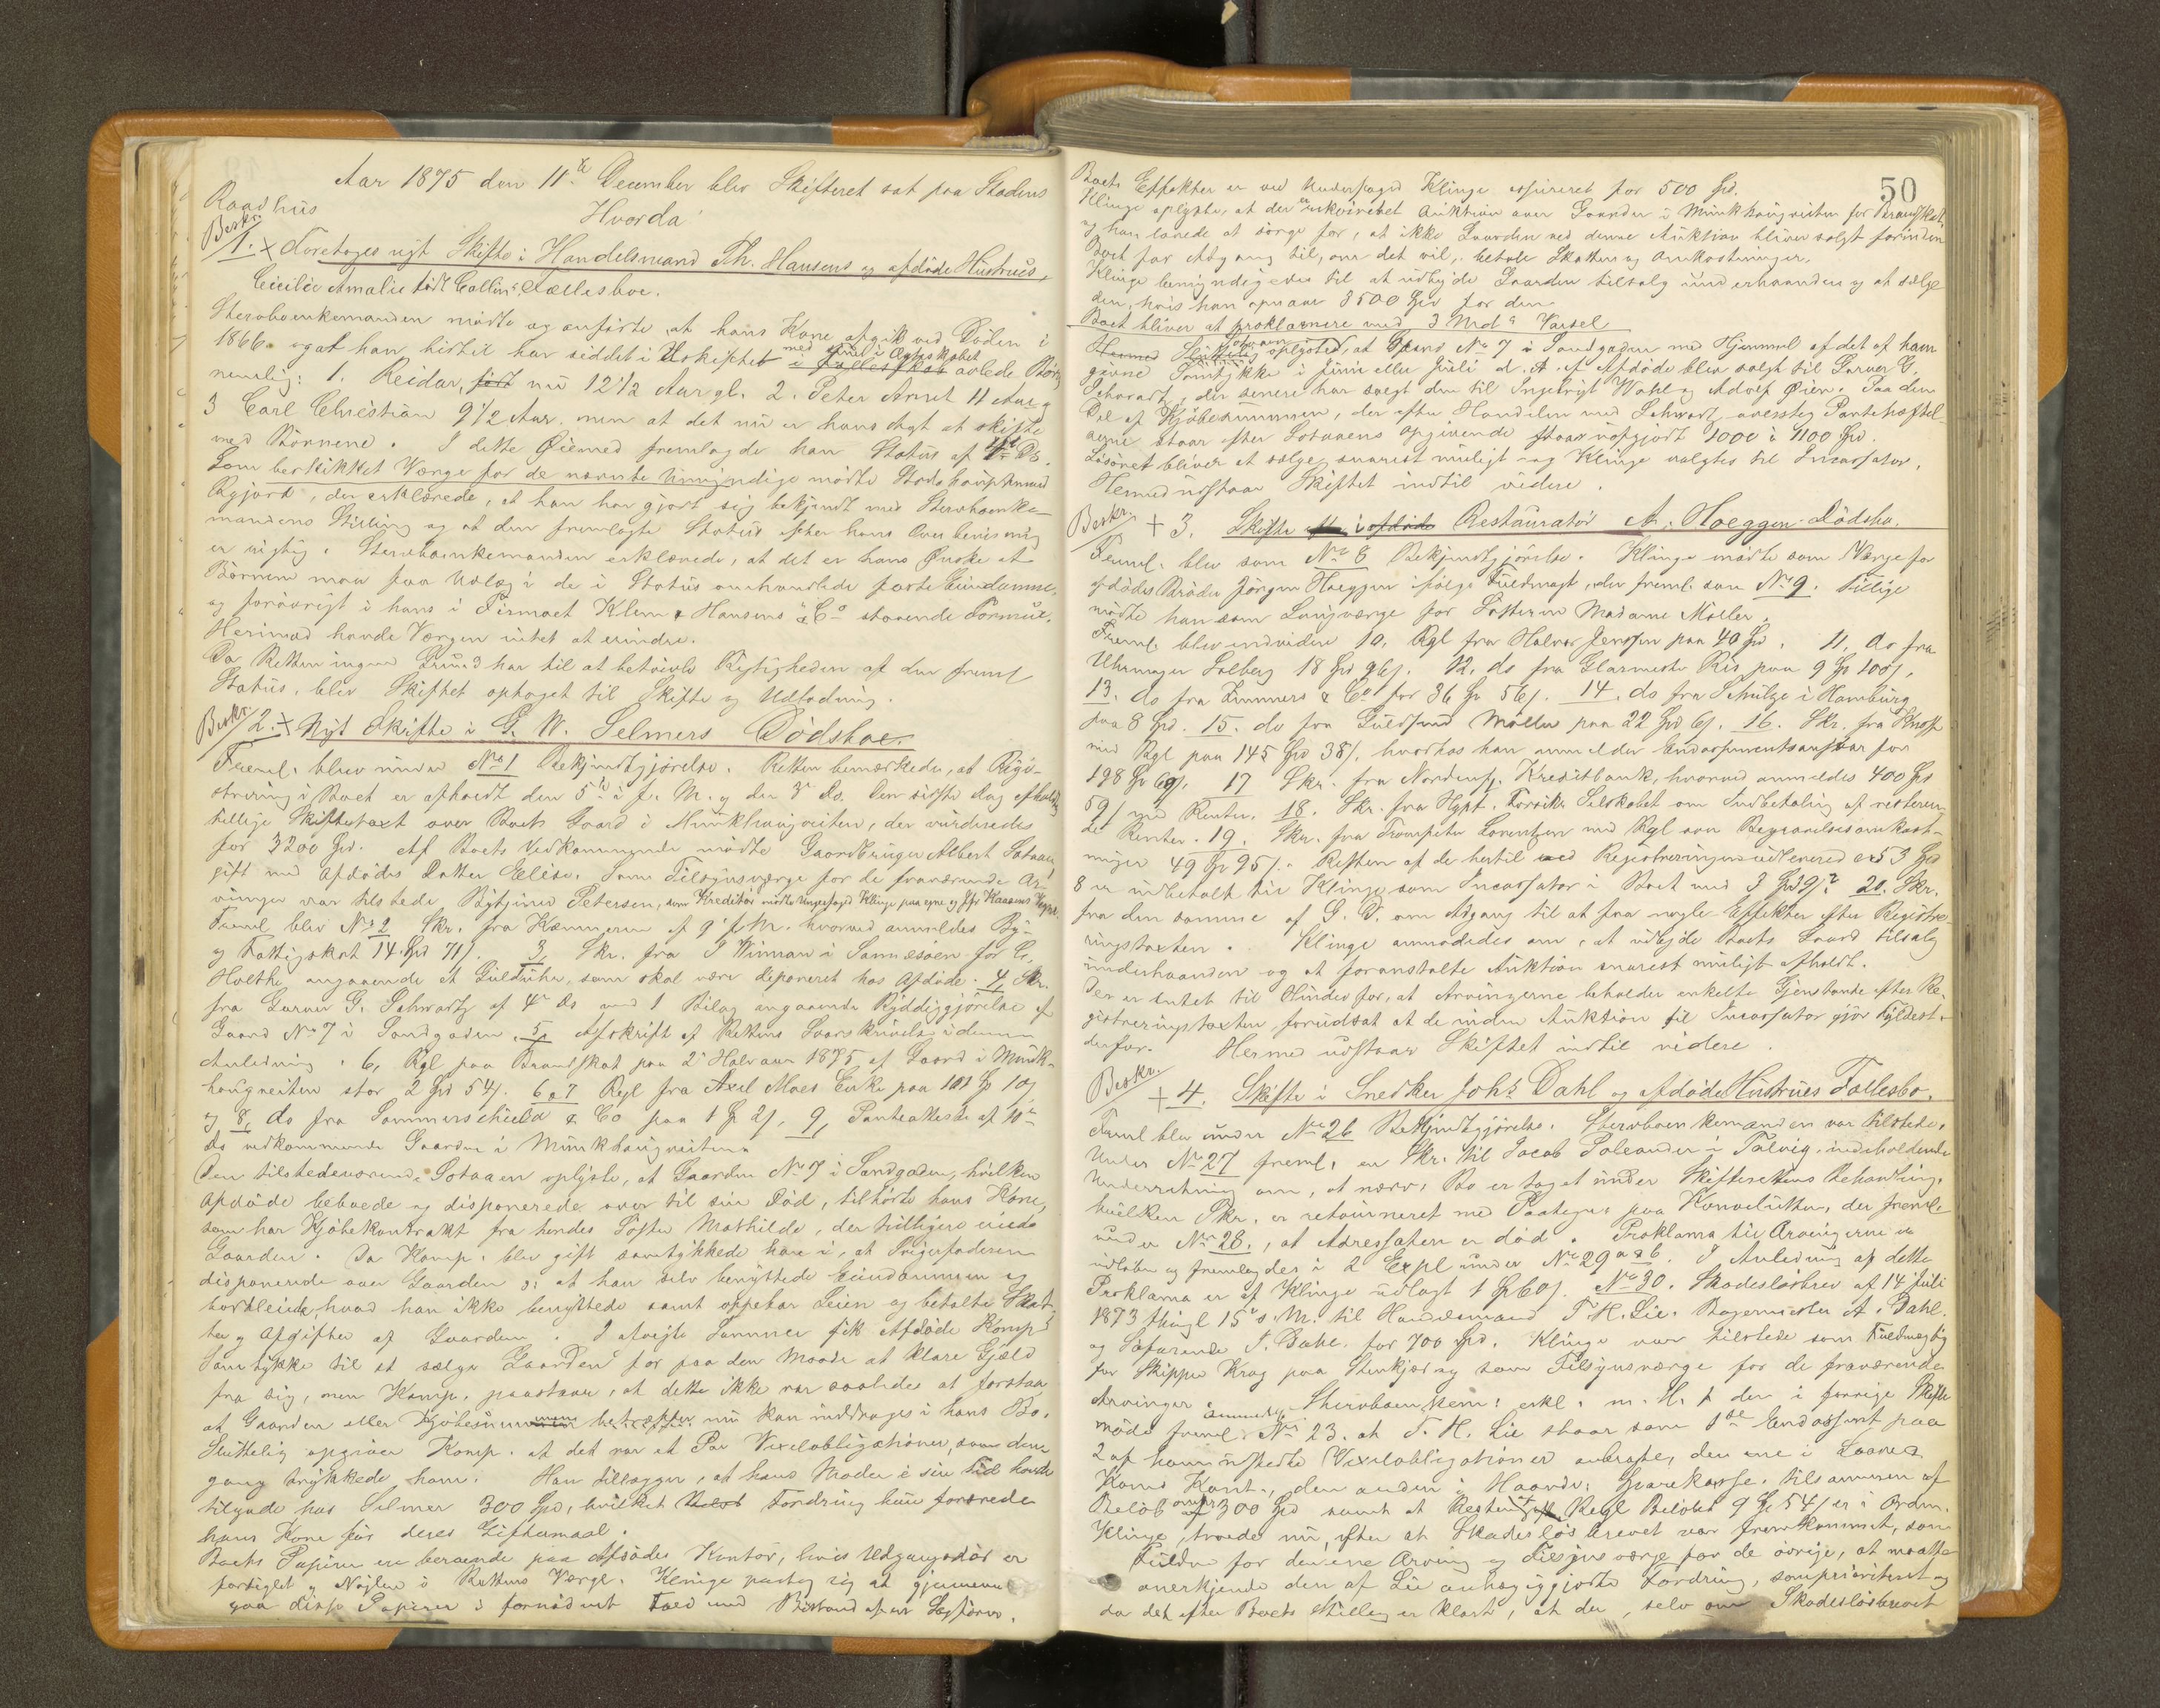 Aar 1875 den 11te December blev Skifteret sat paa Stadens
Raadhus
Hvorda
Beskr.
1. + Foretoges nyt Skifte i Handelsmand Th. Hansens og afdøde Hustrues,
Cicilie Amalie født Collin's Fællesboe.
Stervboenkemanden mødte og anførte, at hans Kone afgik ved Døden i
1866 og at han hidtil har siddet i Uskiftet med sine i Ægteskabet avlede Børn
nemlig: 1. Reidar, født nu 12 1/2 Aar gl. 2. Peter Arnet 11 Aar og
3 Carl Christian 9 1/2 Aar, men at det nu er hans Agt at skifte
med Børnene. I dette Øiemed fremlagde han Status af Ds.
Som beskikket Værge for de nævnte Umyndige mødte Stadshauptmand
, der erklærede, at han har gjort sig bekjendt med Stervboenke-
mandens Stilling og at den fremlagte Status efter hans Overbeviisning
er rigtig. Stervboenkemanden erklærede, at det er hans Ønske at
Børnene maa faa Udlæg i de i Status omhandlede faste Eiendomme,
og forøvrigt i hans i Firmaet Klem & Hansens & Co staaende Formue.
Herimod havde Værgen intet at erindre.
Da Retten ingen Grund har til at betvivle Rigtigheden af den freml
Status, blev Skiftet optaget til Skifte og Udlodning.
Beskr.
2. + Nyt Skifte i G. W. Selmers Dødsboe.
Freml. blev under No 1 Bekjendtgjørelse. Retten bemærkede, at Regi-
strering i Boet er afholdt den 5te i f. M. og den 3die ds. Den sidste Dag afholdtes
tillige Skiftetaxt over Boets Gaard i Munkhaugveiten, der vurderedes
for 3200 Spd. Af Boets Vedkommende mødte Gaardbruger Albert Sotaaen,
gift med Afdødes Datter Elise. Som Tilsynsværge for de fraværende Ar-
vinger var tilstede Petersen, som Kreditor mødte Klinge paa egne og
Freml blev No 2 Skr. fra Kæmneren af 9de f. M. hvorved anmeldes By-
og Fattigskat 14 Spd 71 s. 3, Skr. fra J Winman i for C.
Holthe angaaende et Guldurhr, som skal være deponeret hos Afdøde. 4, Skr.
fra Garver G. Schwartz af 4de ds med 1 Bilag angaaende Ryddiggjørelse af
Gaard No 7 i Sandgaden, 5, Afskrift af Rettens Svarskrivelse i denne
Anledning. 6, Rgl paa Brandskat paa 2det Halvaar 1875 af Gaard i Munk-
haugveiten stor 2 Spd 54 s. 6 & 7 Rgl fra Axel Moes Enke paa 101 Sp 10 s
og 8, do fra Sommerschield & Co paa 1 Sp 2 s, 9, Panteatteste af 10de
ds vedkommende Gaarden i Munkhaugveiten.
Den tilstedeværende Sotaaen oplyste, at Gaarden No 7 i Sandgaden, hvilken
Afdøde beboede og disponerede over til sin Død, tilhørte hans Kone,
som har Kjøbekontrakt fra hendes Søster Mathilde, der tidligere eiede
Gaarden. Da Komp. blev gift samtykkede han i, at Svigerfaderen
disponerede over Gaarden o: at han selv benyttede Eiendommen og
bortleiede, hvad han ikke benyttede samt oppebar Leien og betalte Skat-
ter og Afgifter af Gaarden. I afvigte Sommer fik Afdøde Komps
Samtykke til at sælge Gaarden for paa den Maade at klare Gjæld
fra sig, men Komp. paastaar, at dette ikke var saaledes at forstaa
at Gaarden eller Kjøbesummen nu kan inddrages i hans Bo.
Sluttelig opgiver Komp. at det var et Par Vexelobligationer, som den-
gang trykkede ham. Han tillægger, at hans Moder i sin Tid havde
tilgode hos Selmer 300 Spd, hvilket Fordring hun forærede
hans Kone før deres Giftermaal.
Boets Papirer ere beroende paa Afdødes Kontor, hvis Udgangsdør er
forseglet og Nøglen i Rettens Værge. Klinge paatog sig at gjennem-
gaa disse Papirer i fornødent Fald med Bistand af en Sagfører.
50
Boets Effekter er ved Underfoged Klinge assureret for 500 Spd.
Klinge oplyste, at der er rekvireret Auktion over Gaarden i Munkhaugveiten for Brandskat,
og han lovede at sørge for, at ikke Gaarden ved denne Auktion bliver solgt forinden
Boet faar Adgang til, om det vil, betale Skatten og Omkostninger.
Klinge bemyndigedes til at udbyde Gaarden tilsalg underhaanden og at sælge
den, hvis han opnaar 3500 Spd for den.
Boet bliver at proklamere med 3 Mdrs Varsel
Hermed Sotaaen oplyste, at Gaard No 7 i Sandgaden med Hjemmel af det af ham
givne Samtykke i Juni eller Juli d. A. af Afdøde blev solgt til Garver G.
Schwartz, der senere har solgt den til Ingebrigt Wahl og Adolf Øien. Paa den
Del af Kjøbesummen, der efter Handelen med Schwartz oversteg Pantehæftel-
serne staar efter Sotaaens Opgivende uopgjort 1000 à 1100 Spd.
Løsøret bliver at sælge snarest muligt og Klinge valgtes til Incassator.
Hermed udstaar Skiftet indtil videre.
Beskr.
+ 3. Skifte i afdøde Restauratør A. Hoeggen Dødsbo.
Freml. blev som No 8 Bekjendtgjørelse. Klinge mødte som Værge for
afdødes Broder Jørgen Hoeggen ifølge Fuldmagt, der freml. som No 9. Tillige
mødte han som Laugværge for Søsteren Madame Møller.
Freml. blev endvidere 10, Rgl fra Halvor Jenssen paa 40 Spd. 11, do fra
Uhrmager Solberg 18 Spd 96 s. 12, do fra Glarmester Ris paa 9 Sp 100 s,
13. do fra Zimmers & Co for 36 Sp 56 s. 14. do fra Schultze i Hamburg
paa 8 Spd. 15. do fra Guldsmed Møller paa 22 Spd 6 s. 16. Skr. fra
med Rgl paa 145 Spd 38 s. hvorhos han anmelder Endossementsansvar for
198 Sp 69 s. 17 Skr. fra Nordenfj. Kreditbank, hvorved anmeldes 400 Spd
59 s med Renter. 18. Skr. fra Hypt. Forsikr. Selskabet om Indbetaling af resteren-
de Renter. 19. Skr. fra Trompeter Lorentzen med Rgl over Begravelsesomkost-
ninger 49 Sp 95 s. Resten af de hertil ved Registreringen udleverede 53 Spd
8 er indbetalt til Klinge som Incassator i Boet med 3 Spd 9 s. 20. Skr.
fra den samme af G. D. om Adgang til at faa nogle Effekter efter Registre-
ringstaxten. Klinge anmodedes om, at udbyde Boets Gaard tilsalg
underhaanden og at foranstalte Auktion snarest muligt afholdt.
Der er Intet til Hinder for, at Arvingerne beholder enkelte Gjenstande efter Re-
gistreringstaxten forudsat at de inden Auktion til Incassator gjør Fyldest-
derfor. Hermed udstaar Skiftet indtil videre.
Beskr.
+ 4. Skifte i Snedker Johs Dahl og afdøde Hustrues Fællesbo.
Freml blev under No 26 Bekjendtgjørelse. Stervboenkemanden var tilstede.
Under No 27 freml. en Skr. til Jacob Poleander i Talvig, indeholdende
Underretning om, at nærv. Bo er taget under Skifterettens Behandling,
hvilken Skr. er retourneret med Paategn. paa Konvolutten, der freml
under No 28., at Adressaten er død. Proklama til Arvingerne er
udløbet og fremlagdes i 2 Expl under No 29 a & b. I Anledning af dette
Proklama er af Klinge udlagt 1 Sp 60 s. No 30. Skadesløsbrev af 14 Juli
1873 thingl 15de s. M. til Handelsmand T. H. Lie, Bagermester A. Dahl
og Søfarende J. Dahl for 700 Spd. Klinge var tilstede som Fuldmægtig
for Skipper Krog paa Stenkjær og som Tilsynsværge for de fraværende
Arvinger. Stervboenkem. erkl. m. H. t den i forrige Skifte
møde freml. No 23. at T. H. Lie staar som 1ste Endossent paa
2 af ham udstedte Vexelobligationer anbragte, den ene i Laane
Kont., den anden i Haandv. Sparekasse, tilsammen af
Beløb omtr 300 Spd samt at Restens Regl Beløbet 9 Sp 54 s er i Orden.
Klinge troede nu, efter at Skadesløsbrevet var fremkommet, som
Fuldm for den ene Arving og Tilsynsværge for de øvrige, at maatte
anerkjende den af Lie anhægiggjorte Fordring, som prioriteret og
da det efter Boets Stilling er klart, at der, selv om Skadesløsbrevet